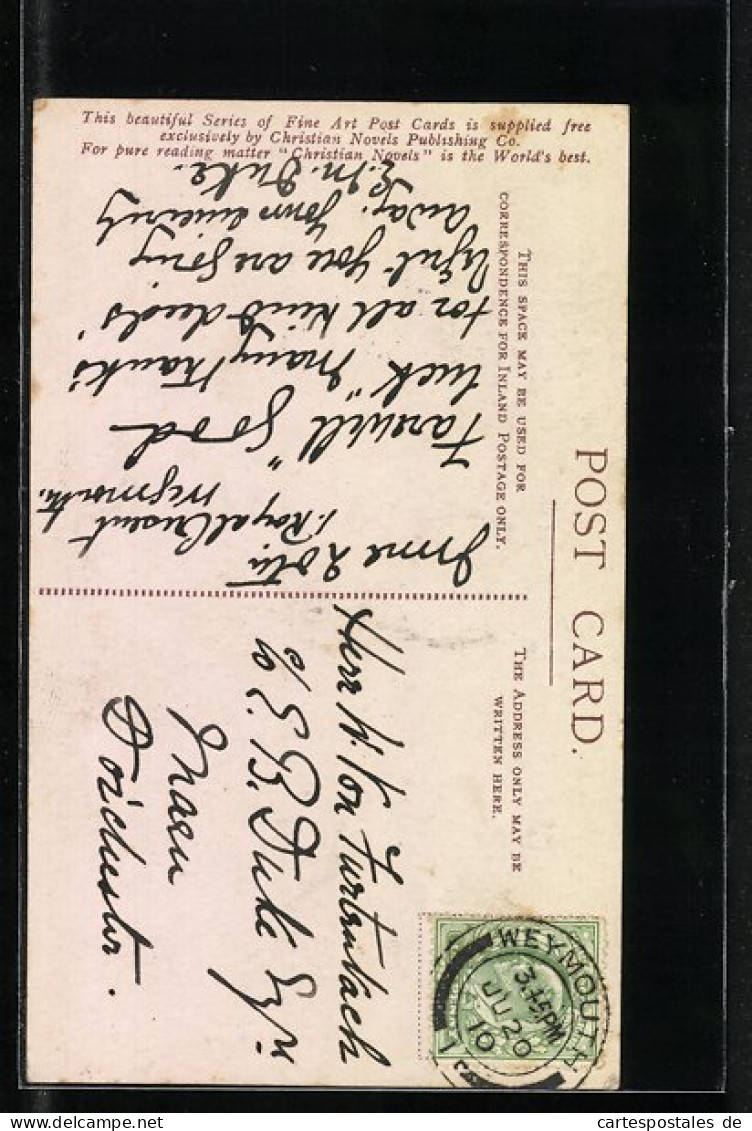 This beautiful Series of Fine Art Post Cards is supplied free
exclusively by Christian Novels Publishing Co.
For pure reading matter "Christian Novels" is the World's best.
POST CARD.
THIS SPACE MAY BE USED FOR
CORRESPONDENCE FOR INLAND POSTAGE ONLY.
THE ADDRESS ONLY MAY BE
WRITTEN HERE.
June 20th.
1. Royal Crescent
Weymouth.
Farewell "good
luck" many thanks
for all kind deeds
you are going
away. Yours sincerely
E. M. Duke.
Herr W. Von Furtenbach
c/o E. B. Duke Esqre
Maen
Dorchester.
WEYMOUTH
3.15 PM
JU 20
10
1
Ihr Ansichtskarten-Shop www.bartko-reher.de
cartespostales.de